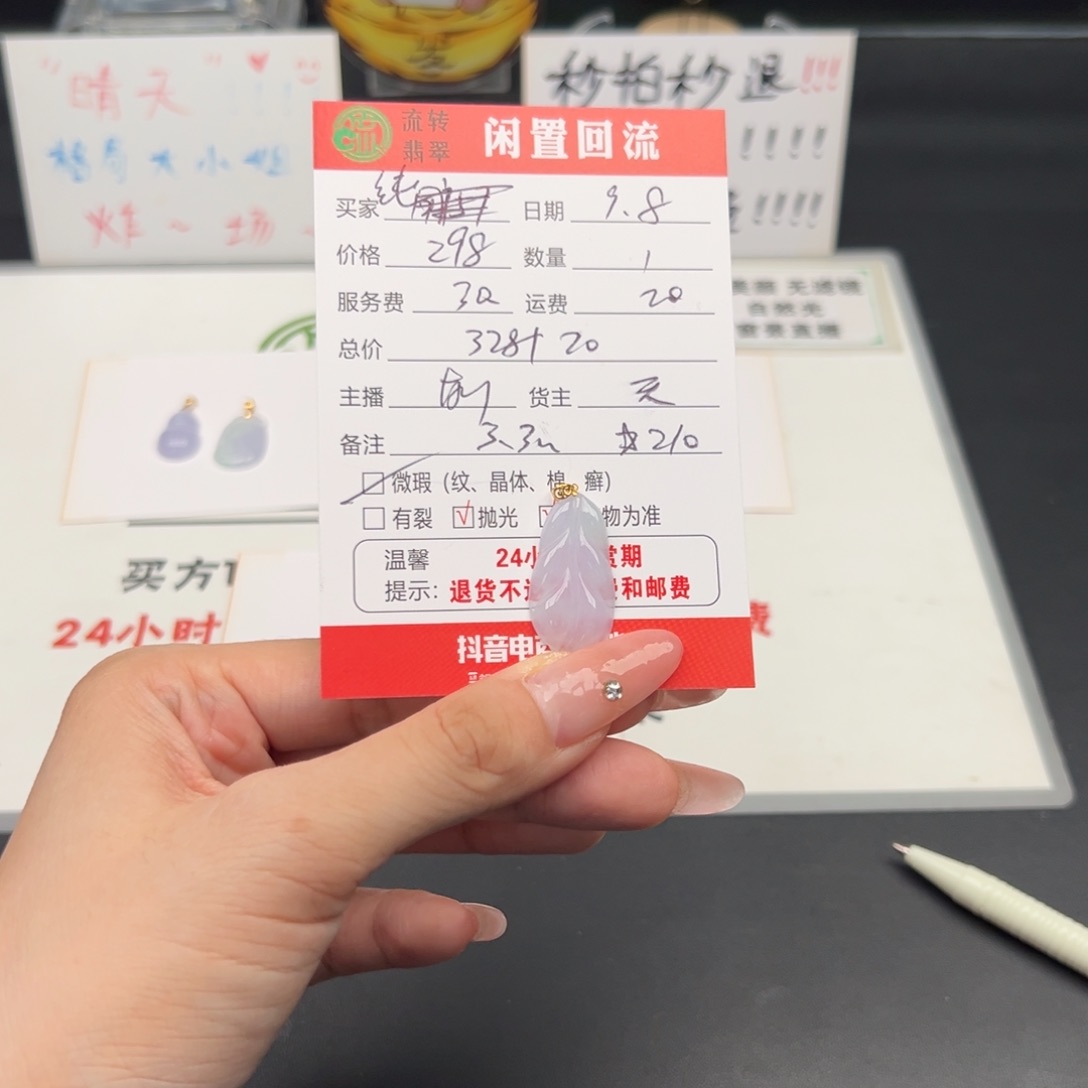 晴天
大小姐
炸~场~
秒拍秒退!!!
!!!!
!!!!
无滤镜
自然光
直播
流转
翡翠
闲置回流
买家 纯 日期 9.8
价格 298 数量 1
服务费 30 运费 20
总价 328+20
主播 货主 天
备注 210
微瑕(纹、晶体、棉、癣)
有裂 √抛光 物为准
温馨 24小 赏期
提示: 退货不 和邮费
抖音电
买方
24小时 费